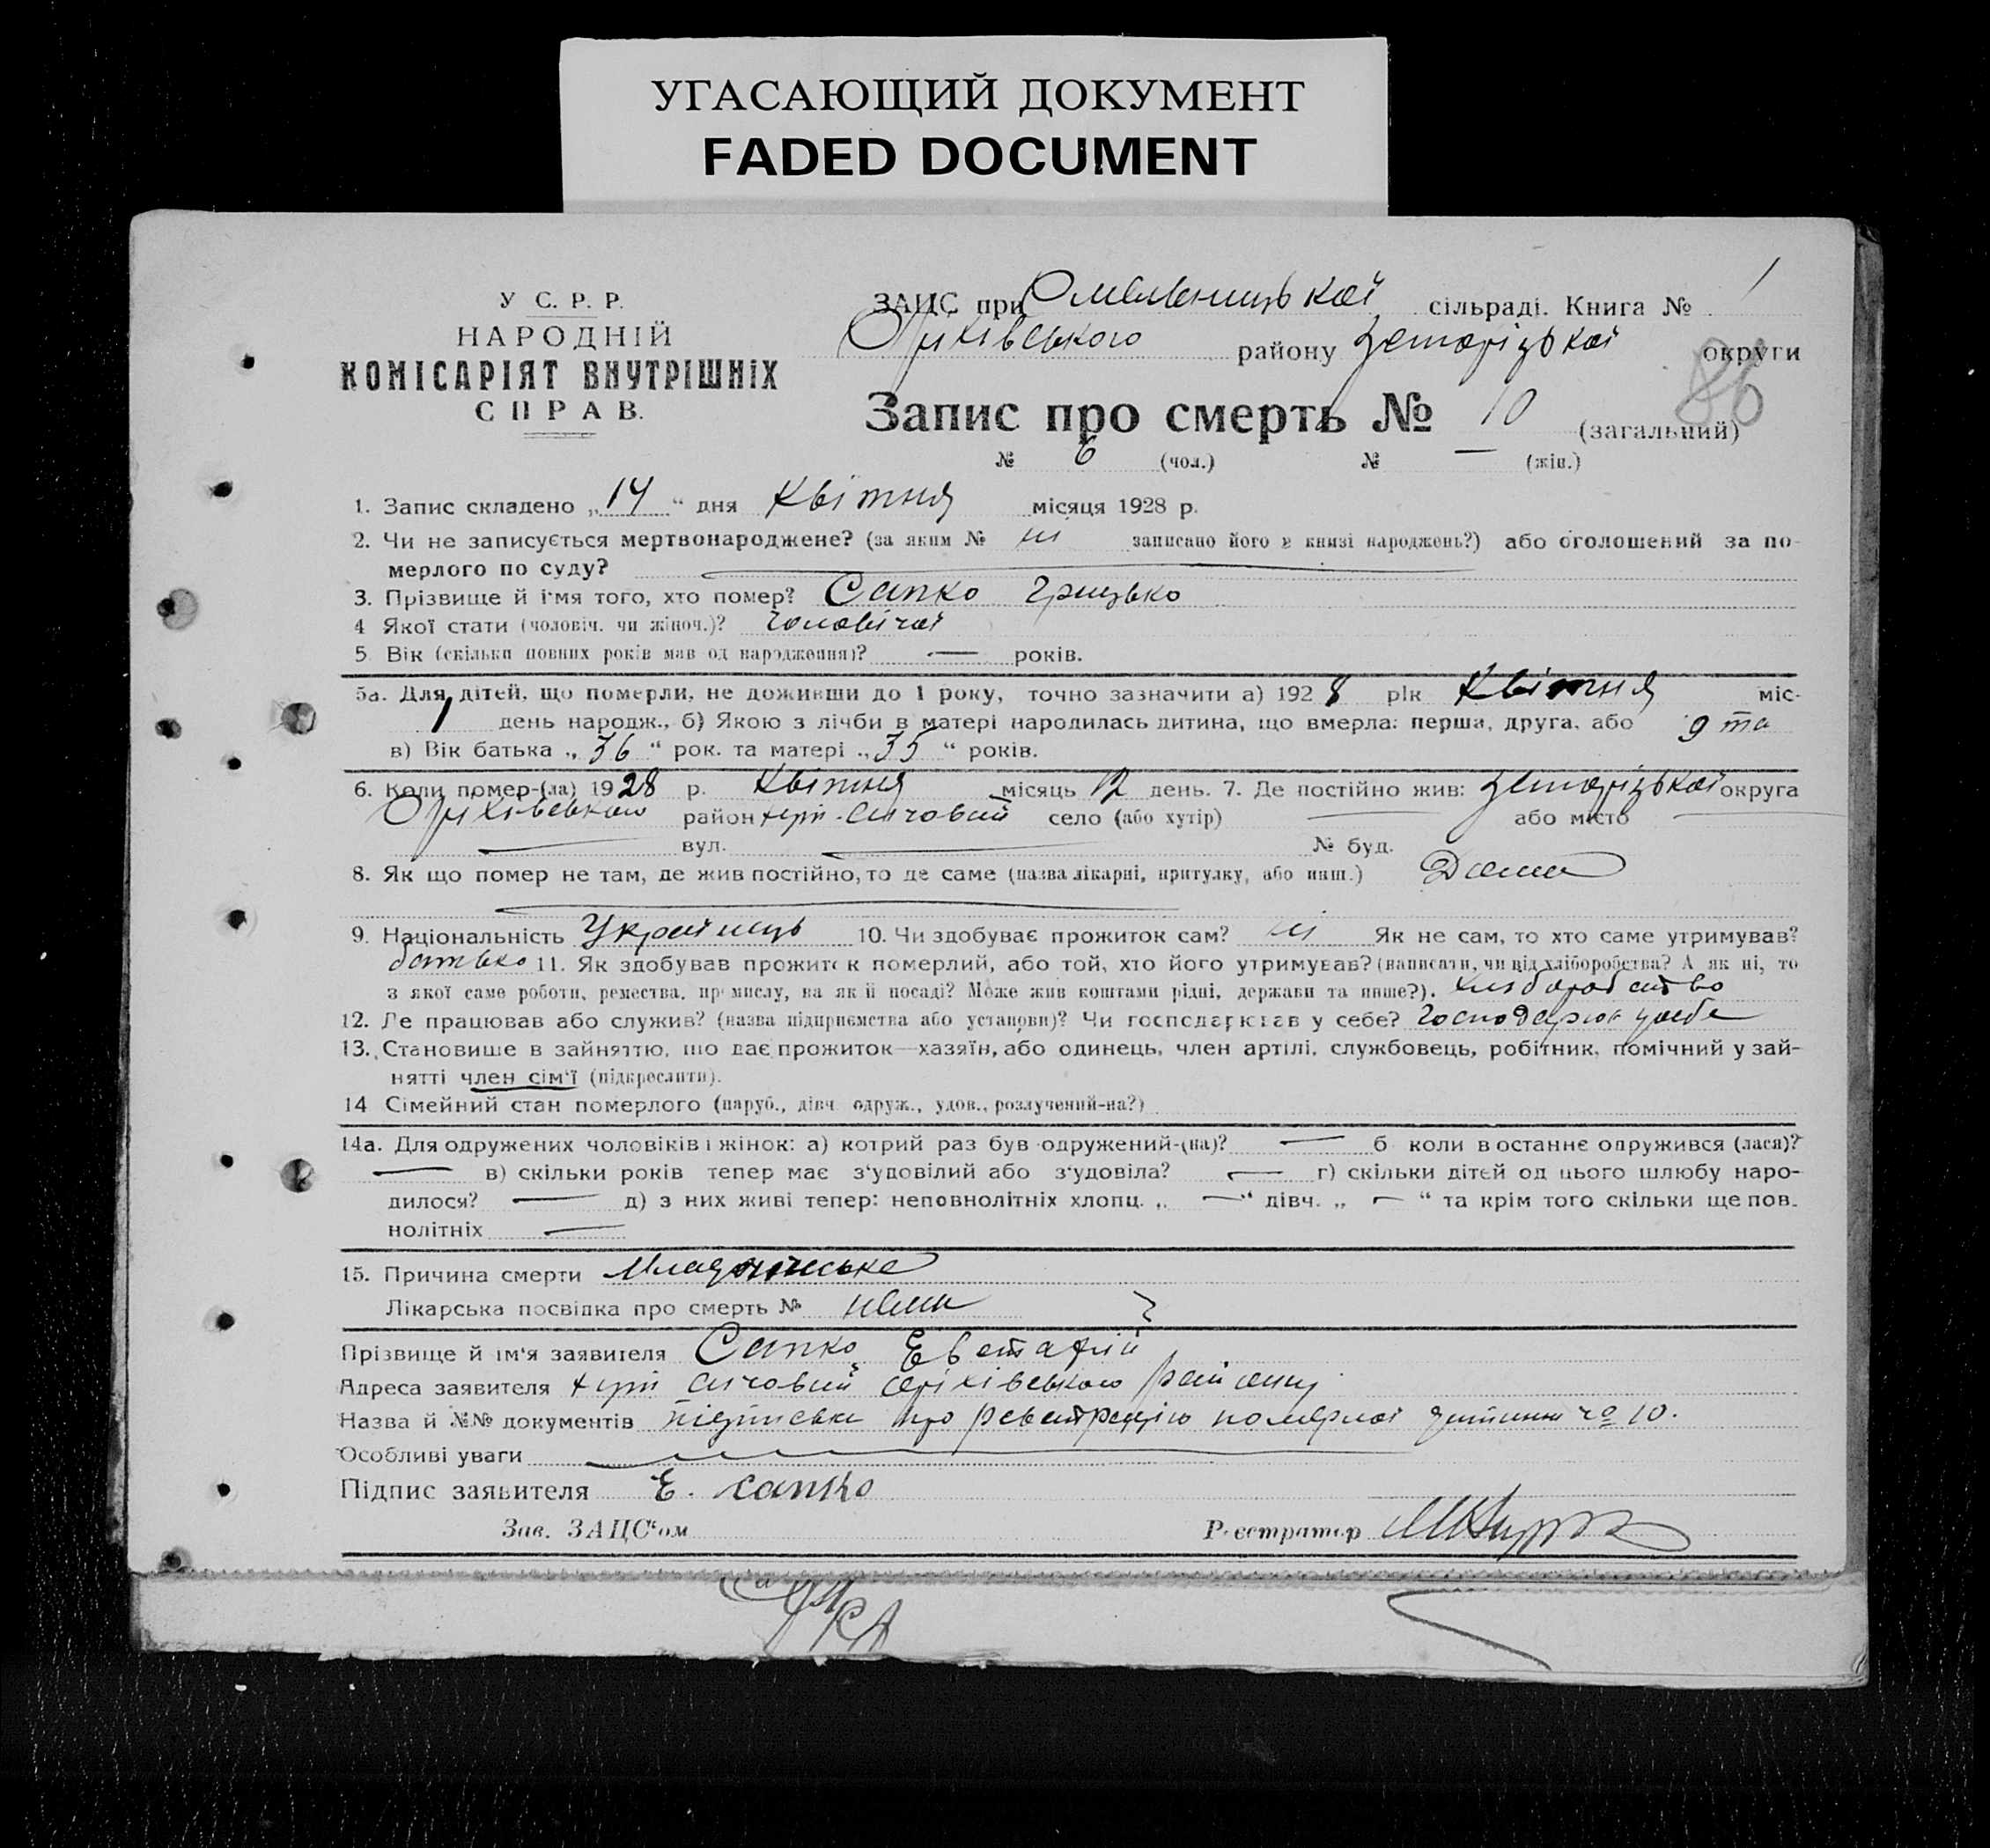 УГАСАЮЩИЙ ДОКУМЕНТ
FADED DOCUMENT
У С. Р. Р.
НАРОДНІЙ
КОМІСАРІЯТ ВНУТРІШНІХ
СПРАВ.
ЗАЦС при Омельницької сільраді. Книга № 1
Оріхівського району Запорізької округи
86
Запис про смерть № 10 (загальний)
№ 6 (чол.) № — (жін.)
1. Запис складено „14“ дня Квітня місяця 1928 р.
2. Чи не записується мертвонароджене? (за яким № ні записано його в книзі народжень?) або оголошений за по-
мерлого по суду?
3. Прізвище й ім'я того, хто помер? Сапко Грицько
4 Якої стати (чоловіч. чи жіноч.)? Чоловічої
5. Вік (скільки повних років мав од народження)? — років.
5а. Для дітей, що померли, не доживши до 1 року, точно зазначити а) 1928 рік Квітня міс-
1 день народж., б) Якою з лічби в матері народилась дитина, що вмерла: перша, друга, або 9 та
в) Вік батька „36“ рок. та матері „35“ років.
6. Коли помер-(ла) 1928 р. Квітня місяць 12 день. 7. Де постійно жив: Запорізької округа
Оріхівського район село (або хутір) — або місто —
— вул. — № буд.
8. Як що помер не там, де жив постійно, то де саме (назва лікарні, притулку, або инш.) Дома
9. Національність Українець 10. Чи здобуває прожиток сам? ні Як не сам, то хто саме утримував?
батько 11. Як здобував прожиток померлий, або той, хто його утримував? (написати, чи від хліборобства? А як ні, то
з якої саме роботи, ремества, промислу, на якій посаді? Може жив коштами рідні, держави та инше?). хліборобство
12. Де працював або служив? (назва підприємства або установи)? Чи господарював у себе? Господарюв у себе
13. Становище в зайняттю, що дає прожиток—хазяїн, або одинець, член артілі, службовець, робітник, помічний у зай-
нятті член сім'ї (підкреслити).
14 Сімейний стан померлого (паруб., дівч. одруж., удов., розлучений-на?)
14а. Для одружених чоловіків і жінок: а) котрий раз був одружений-(на)? — б коли востаннє одружився (лася)?
— в) скільки років тепер має з'удовілий або з'удовіла? — г) скільки дітей од цього шлюбу наро-
дилося? — д) з них живі тепер: неповнолітніх хлопц. „—“ дівч. „—“ та крім того скільки ще пов.
нолітніх —
15. Причина смерти
Лікарська посвідка про смерть № нема
Прізвище й ім'я заявителя Сапко Евстафій
Адреса заявителя Оріхівського району
Назва й №№ документів підписка про реєстрацію померлої дитини № 10.
Особливі уваги
Підпис заявителя Е. Сапко
Зав. ЗАЦС'ом Реєстратор